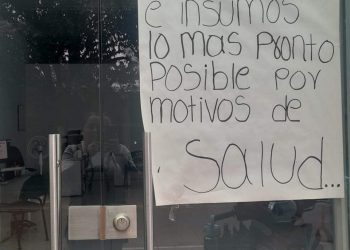 e insumos
lo mas pronto
posible por
motivos de
Salud...